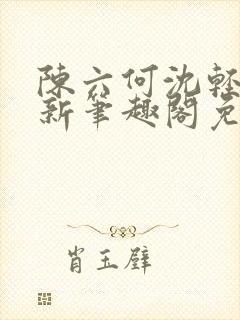 陳六何沈輕
新筆趣閣免
肖玉璧